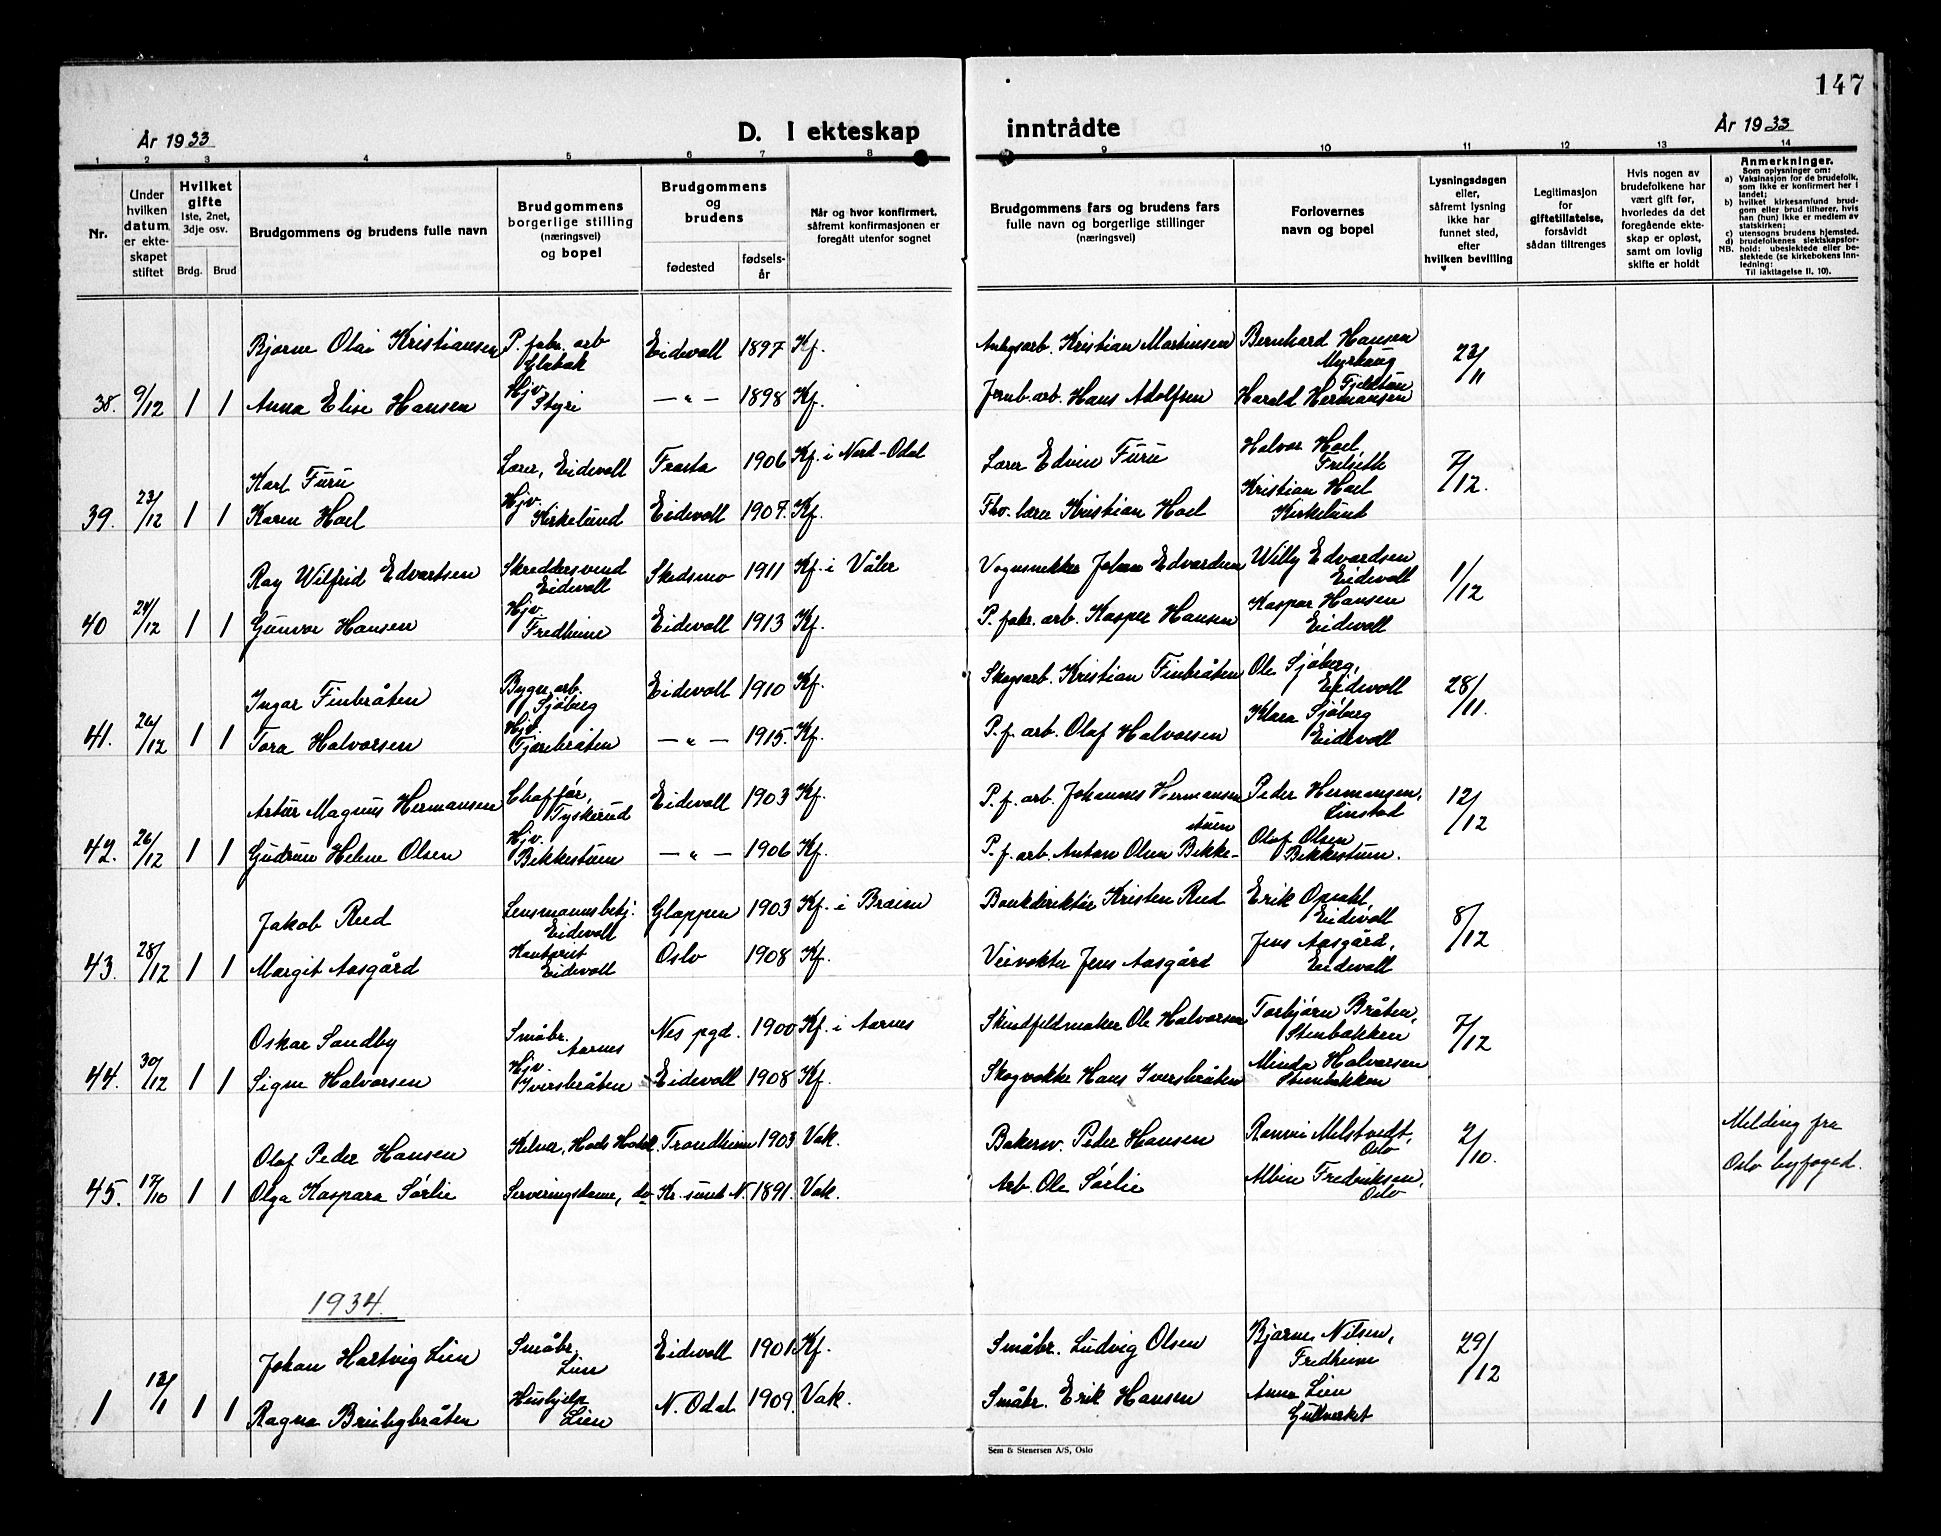 147
År 1933
D. I ekteskap inntrådte
År 1933
1 2 3 4 5 6 7 8 9 10 11 12 13 14
Nr.
Under hvilken datum er ekteskapet stiftet
Hvilket gifte
1ste, 2net, 3dje osv.
Brdg. Brud
Brudgommens og brudens fulle navn
Brudgommens borgerlige stilling (næringsvei) og bopel
Brudgommens og brudens
fødested
fødselsår
Når og hvor konfirmert, såfremt konfirmasjonen er foregått utenfor sognet
Brudgommens fars og brudens fars fulle navn og borgerlige stillinger
Forlovernes navn og bopel
Lysningsdagen eller, såfremt lysning ikke har funnet sted, efter hvilken bevilling
Legitimasjon for giftetillatelse, forsåvidt sådan tiltrenges
Hvis nogen av brudefolkene har vært gift før, hvorledes da det foregående ekteskap er opløst, samt om lovlig skifte er holdt
Anmerkninger.
Som oplysning om:
a) Vaksinasjon for de brudefolk, som ikke er konfirmert her i landet;
b) hvilket kirkesamfund brudgom eller brud tilhører, hvis han (hun) ikke er medlem av statskirken;
c) utensogns brudens hjemsted.
d) brudefolkenes slektskapsforhold: ubeslektede eller beslektede (se kirkebokens Innledning:
NB. Til iakttagelse II, 10).
Bjarne Olai Kristiansen P. fabr. arb Eidsvoll 1897 Kf. Anlegsarb. Kristian Martinsen Bernhard Hansen 23/11
38. 9/12 1 1 Anna Elise Hansen Hjv. Styri — „ — 1898 Kf. Jernb. arb. Hans Adolfsen Harald Hermansen
Karl Furu Lærer, Eidsvoll Frosta 1906 Kf. i Nord-Odal Lærer Edvin Furu Halvor Hoel, 7/12.
39. 23/12 1 1 Karen Hoel Hjv. Kirkelund Eidsvoll 1907. Kf. Fhv. lærer Kristian Hoel Kristian Hoel Kirkelund
Ray Wilfrid Edvartsen Skreddersvend Eidsvoll Skedsmo 1911 Kf. i Våler Vognsnekker Johan Edvardsen Willy Edvardsen Eidsvoll 1/12
40 24/12 1 1 Gunvor Hansen Hjv. Fredheim Eidsvoll 1913 Kf. P. fabr. arb. Kasper Hansen Kaspar Hansen Eidsvoll
Ingar Finbråten Bygn. arb. Sjøberg Eidsvoll 1910 Kf. Skogsarb. Kristian Finbråten Ole Sjøberg, Eidsvoll 28/11.
41. 26/12 1 1 Tora Halvorsen Hjv. Tjærebråten — „ — 1915. Kf. P. f. arb. Olaf Halvorsen Klara Sjøberg Eidsvoll
Artur Magnus Hermansen Chaffør, Tyskerud Eidsvoll 1903 Kf. P. f. arb. Johannes Hermansen Peder Hermansen, Linstad 12/12
42. 26/12 1 1 Gudrun Helene Olsen Hjv. Bekkestuen — „ — 1906 Kf. P. f. arb. Anton Olsen Bekkestuen Olaf Olsen Bekkestuen.
Jakob Rud Lensmannsbetj. Eidsvoll Gloppen 1903 Kf. i Bankdirektør Kristen Rud Erik Opsahl, Eidsvoll 8/12
43. 28/12 1 1 Margit Aasgård Kontorist Eidsvoll Oslo 1908 Kf. Veivokter Jens Aasgård Jens Aasgård, Eidsvoll
Oskar Sandby Småbr. Aarnes Nes pgd. 1900 Kf. i Aarnes Skindfeldmaker Ole Halvorsen Torbjørn Bråten, Stenbakken 7/12
44. 30/12 1 1 Signe Halvorsen Hjv. Iversbråten Eidsvoll 1908 Kf. Skogvokter Hans Iversbråten Minda Halvorsen Stenbakken
Olaf Peder Hansen Kelner, Hads Hotel. Trondheim 1903 Vak. Bakersv. Peder Hansen Milstvedt, Oslo 2/10. Melding fra
45. 17/10 1 1 Olga Kaspara Sørlie Serveringsdame, do Kr. sund N. 1891. Vak. Arb. Ole Sørlie Albin Fredriksen, Oslo Oslo byfoged.
1934.
Johan Hartvig Lien Småbr. Lien Eidsvoll 1901. Kf. Småbr. Ludvig Olsen Bjarne Nilsen, Fredheim 29/12
1 13/1 1 1 Ragna Brubybråten Hushjelp Lien N. Odal 1909. Vak. Småbr. Erik Hansen Anna Lien Gullverket
Sem & Stenersen A/S, Oslo